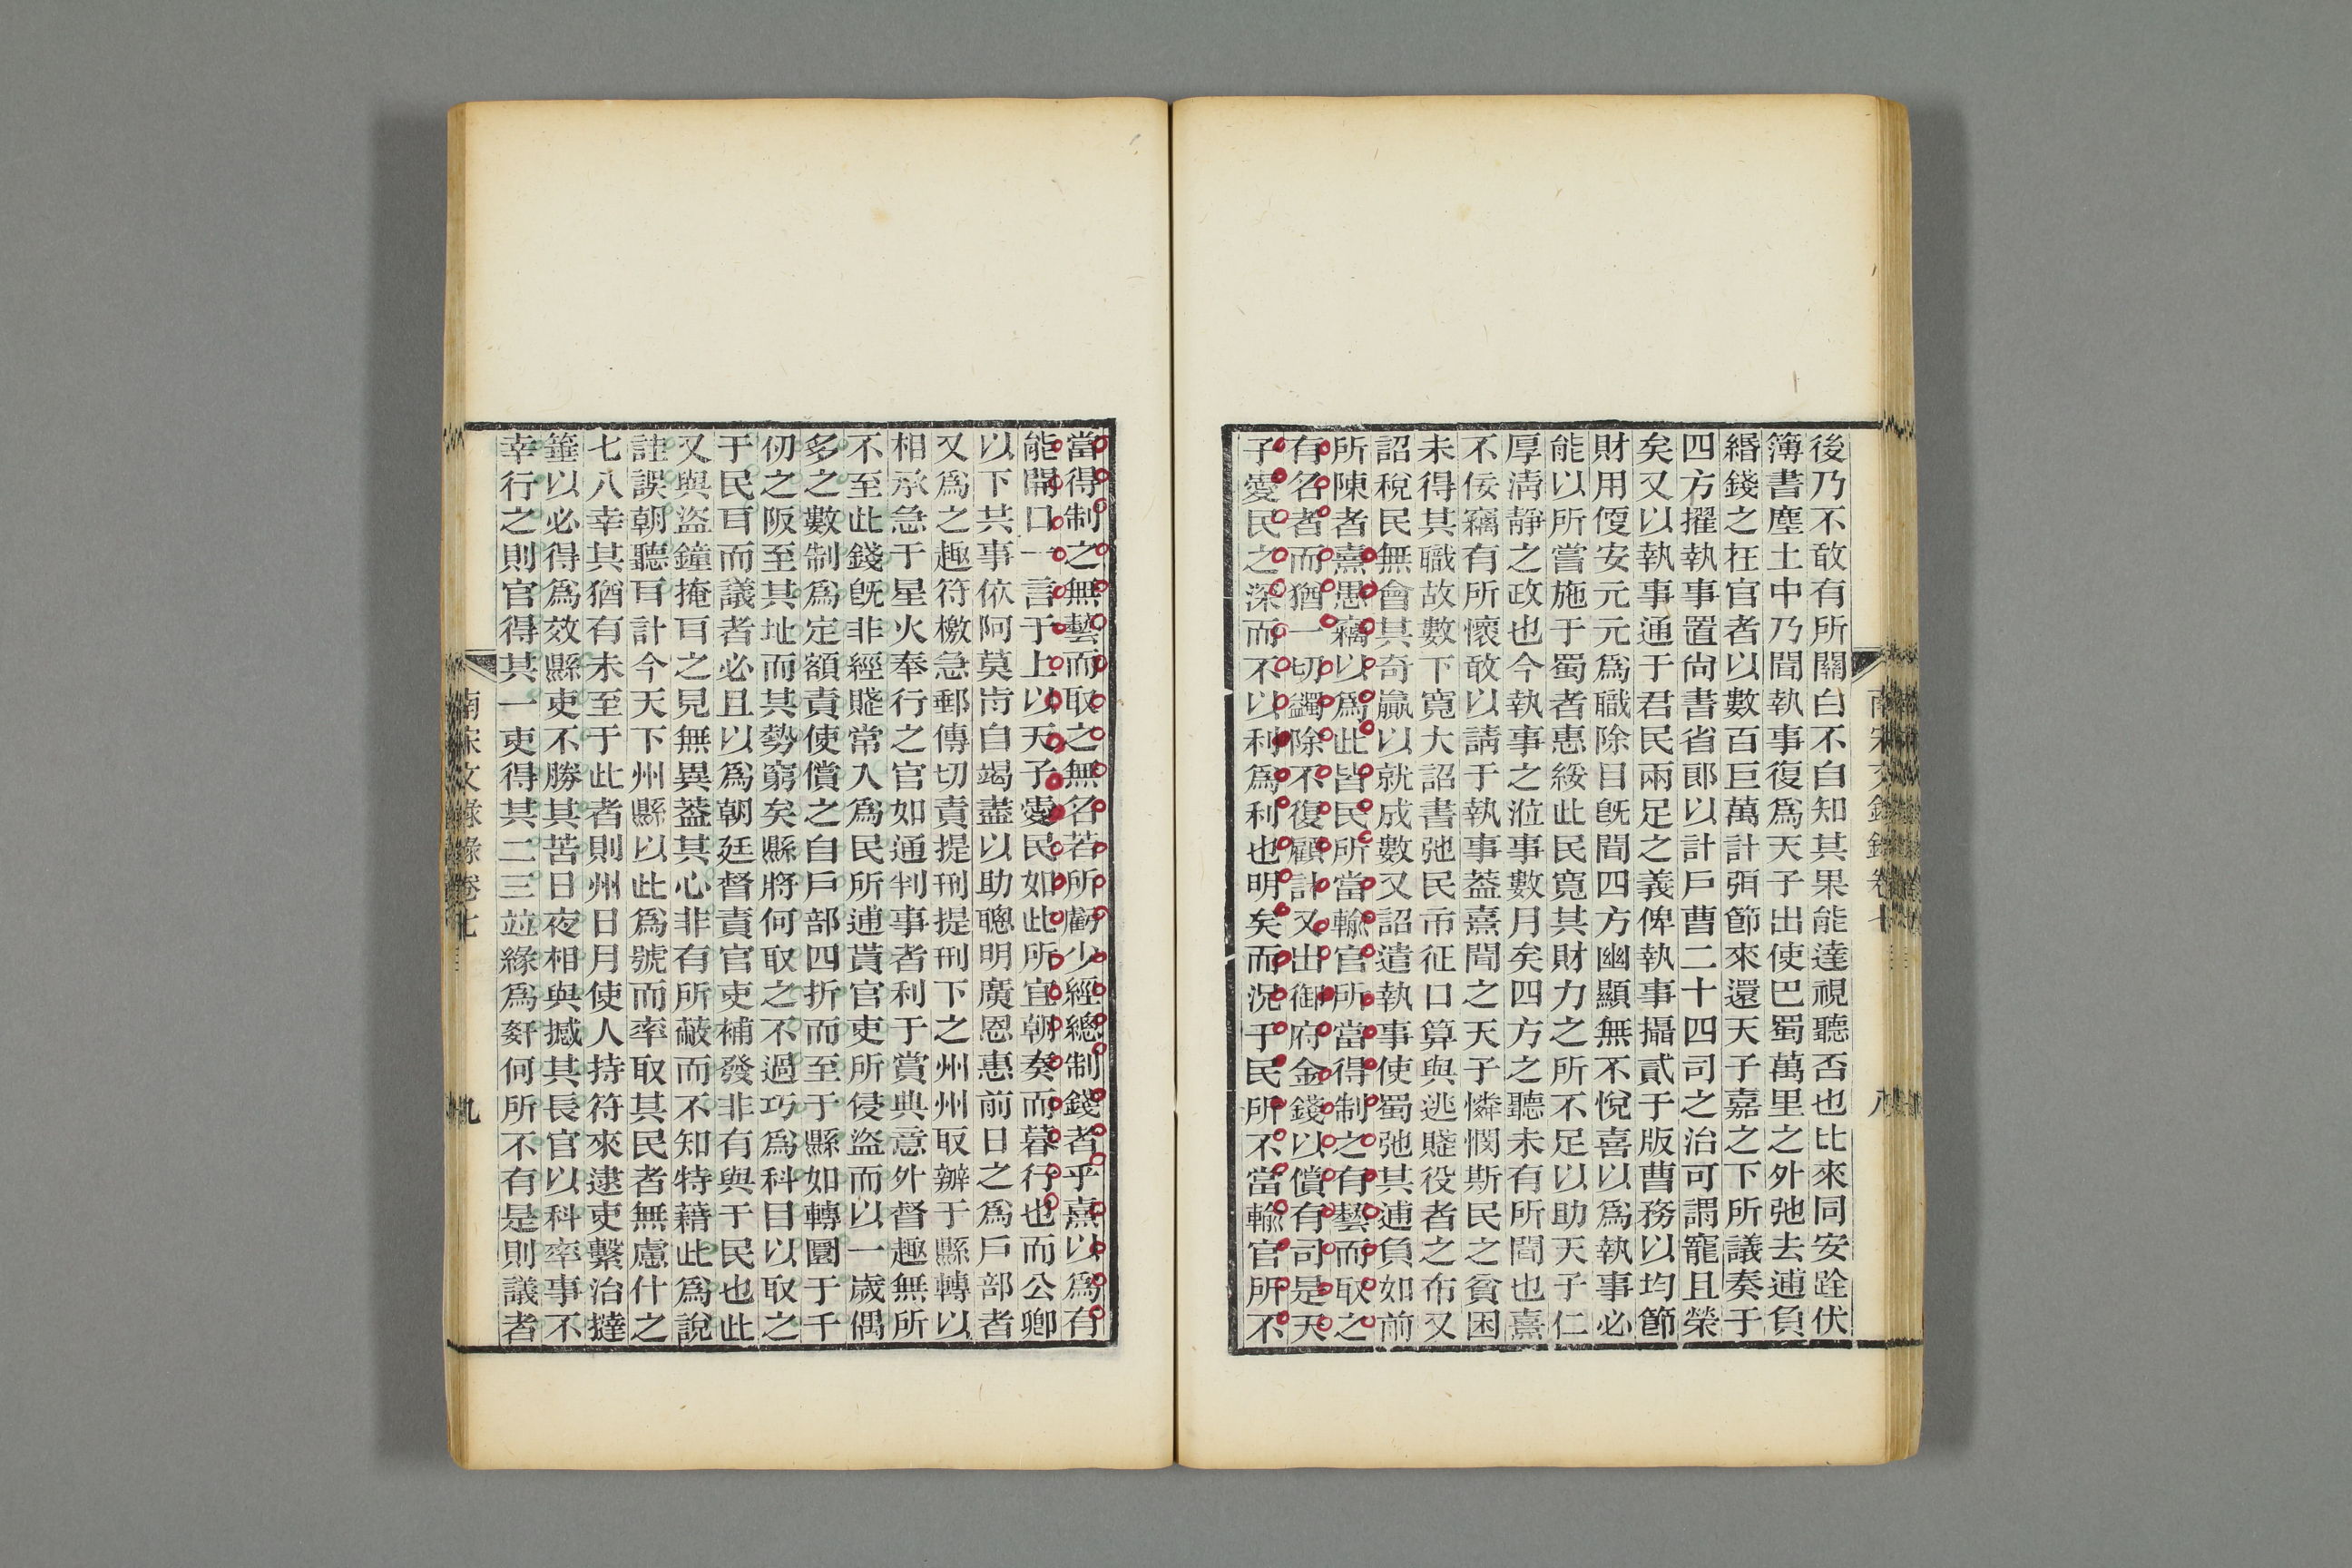 後乃不敢有所關白不自知其果能達視聽否也比來同安跧伏
簿書塵土中乃聞執事復爲天子出使巴蜀萬里之外弛去逋負
緡錢之在官者以數百巨萬計弭節來還天子嘉之下所議奏于
四方擢執事置尙書省郎以計戶曹二十四司之治可謂寵且榮
矣又以執事通于君民兩足之義俾執事攝貳于版曹務以均節
財用偃安元元爲職除目旣聞四方幽顯無不悅喜以爲執事必
能以所嘗施于蜀者惠綏此民寛其財力之所不足以助天子仁
厚淸靜之政也今執事之涖事數月矣四方之聽未有所聞也熹
不佞竊有所懷敢以請于執事葢熹聞之天子憐憫斯民之貧困
未得其職故數下寛大詔書弛民市征口算與逃賦役者之布又
詔稅民無會其奇贏以就成數又詔遣執事使蜀弛其逋負如前
所陳者熹愚竊以爲此皆民所當輸官所當得制之有藝而取之
有名者而猶一切蠲除不復顧計又出御府金錢以償有司是天
子愛民之深而不以利爲利也明矣而況于民所不當輸官所不
南宋文錄錄卷七
八
當得制之無藝而取之無名若所虧少經總制錢者乎熹以爲有
能開口一言于上以天子愛民如此所宜朝奏而暮行也而公卿
以下共事依阿莫肯自竭盡以助聰明廣恩惠前日之爲戶部者
又爲之趣符檄急郵傳切責提刑提刑下之州州取辦于縣轉以
相承急于星火奉行之官如通判事者利于賞典意外督趣無所
不至此錢旣非經賦常入爲民所逋負官吏所侵盜而以一歲偶
多之數制爲定額責使償之自戶部四折而至于縣如轉圜于千
仞之阪至其址而其勢窮矣縣將何取之不過巧爲科目以取之
于民耳而議者必且以爲朝廷督責官吏補發非有與于民也此
又與盜鐘掩耳之見無異葢其心非有所蔽而不知特藉此爲說
詿誤朝聽耳計今天下州縣以此爲號而率取其民者無慮什之
七八幸其猶有未至于此者則州日月使人持符來逮吏繫治撻
箠以必得爲效縣吏不勝其苦日夜相與撼其長官以科率事不
幸行之則官得其一吏得其二三並緣爲姧何所不有是則議者
南宋文錄錄卷七
九